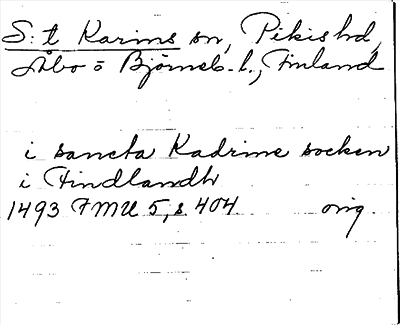 S:t Karins sn, Pikishd,
Åbo o Björneb. l., Finland
i sancta Kadrine socken
i Findlandh
1493 FMU 5, s 404 orig.